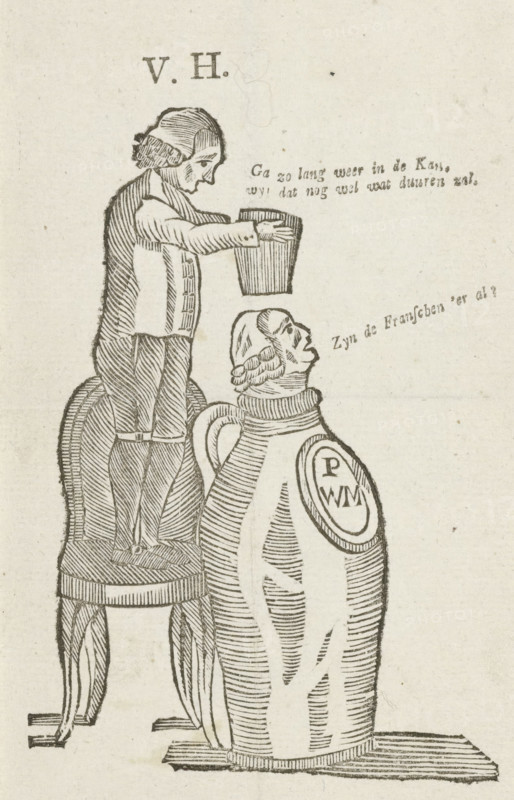 V. H.
Ga zo lang weer in de Kan,
wyl dat nog wel wat duuren zal.
Zyn de Franschen 'er al?
P
WM